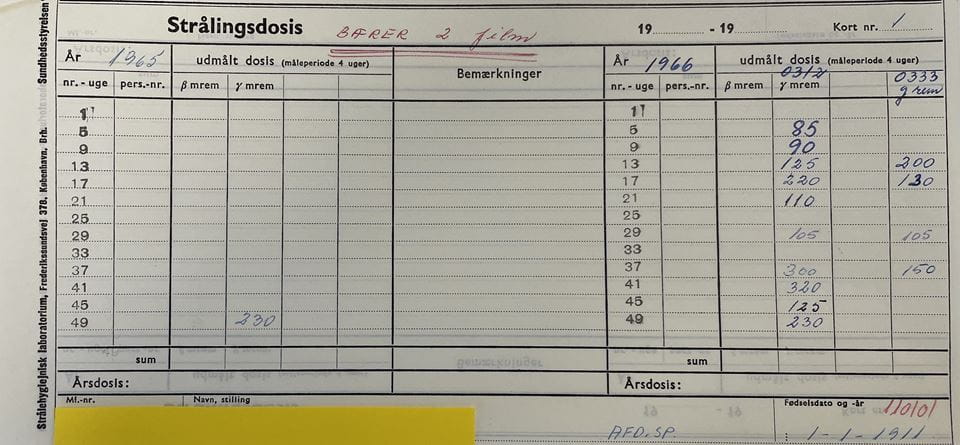 Strålingsdosis BÆRER 2 film 19 - 19 Kort nr. 1
År 1965 udmålt dosis (måleperiode 4 uger) Bemærkninger År 1966 udmålt dosis (måleperiode 4 uger)
0312 0333
nr. - uge pers.-nr. β mrem γ mrem nr. - uge pers.-nr. β mrem γ mrem
1 1
5 5 85
9 9 90
13 13 125 200
17 17 220 130
21 21 110
25 25
29 29 105 105
33 33
37 37 300 150
41 41 320
45 45 125
49 230 49 230
sum sum
Årsdosis: Årsdosis:
Ml.-nr. Navn, stilling Fødselsdato og -år
AFD.SP. 1-1-1911
Strålehygiejnisk laboratorium, Frederikssundsvej 378, København, Brh. Sundhedsstyrelsen